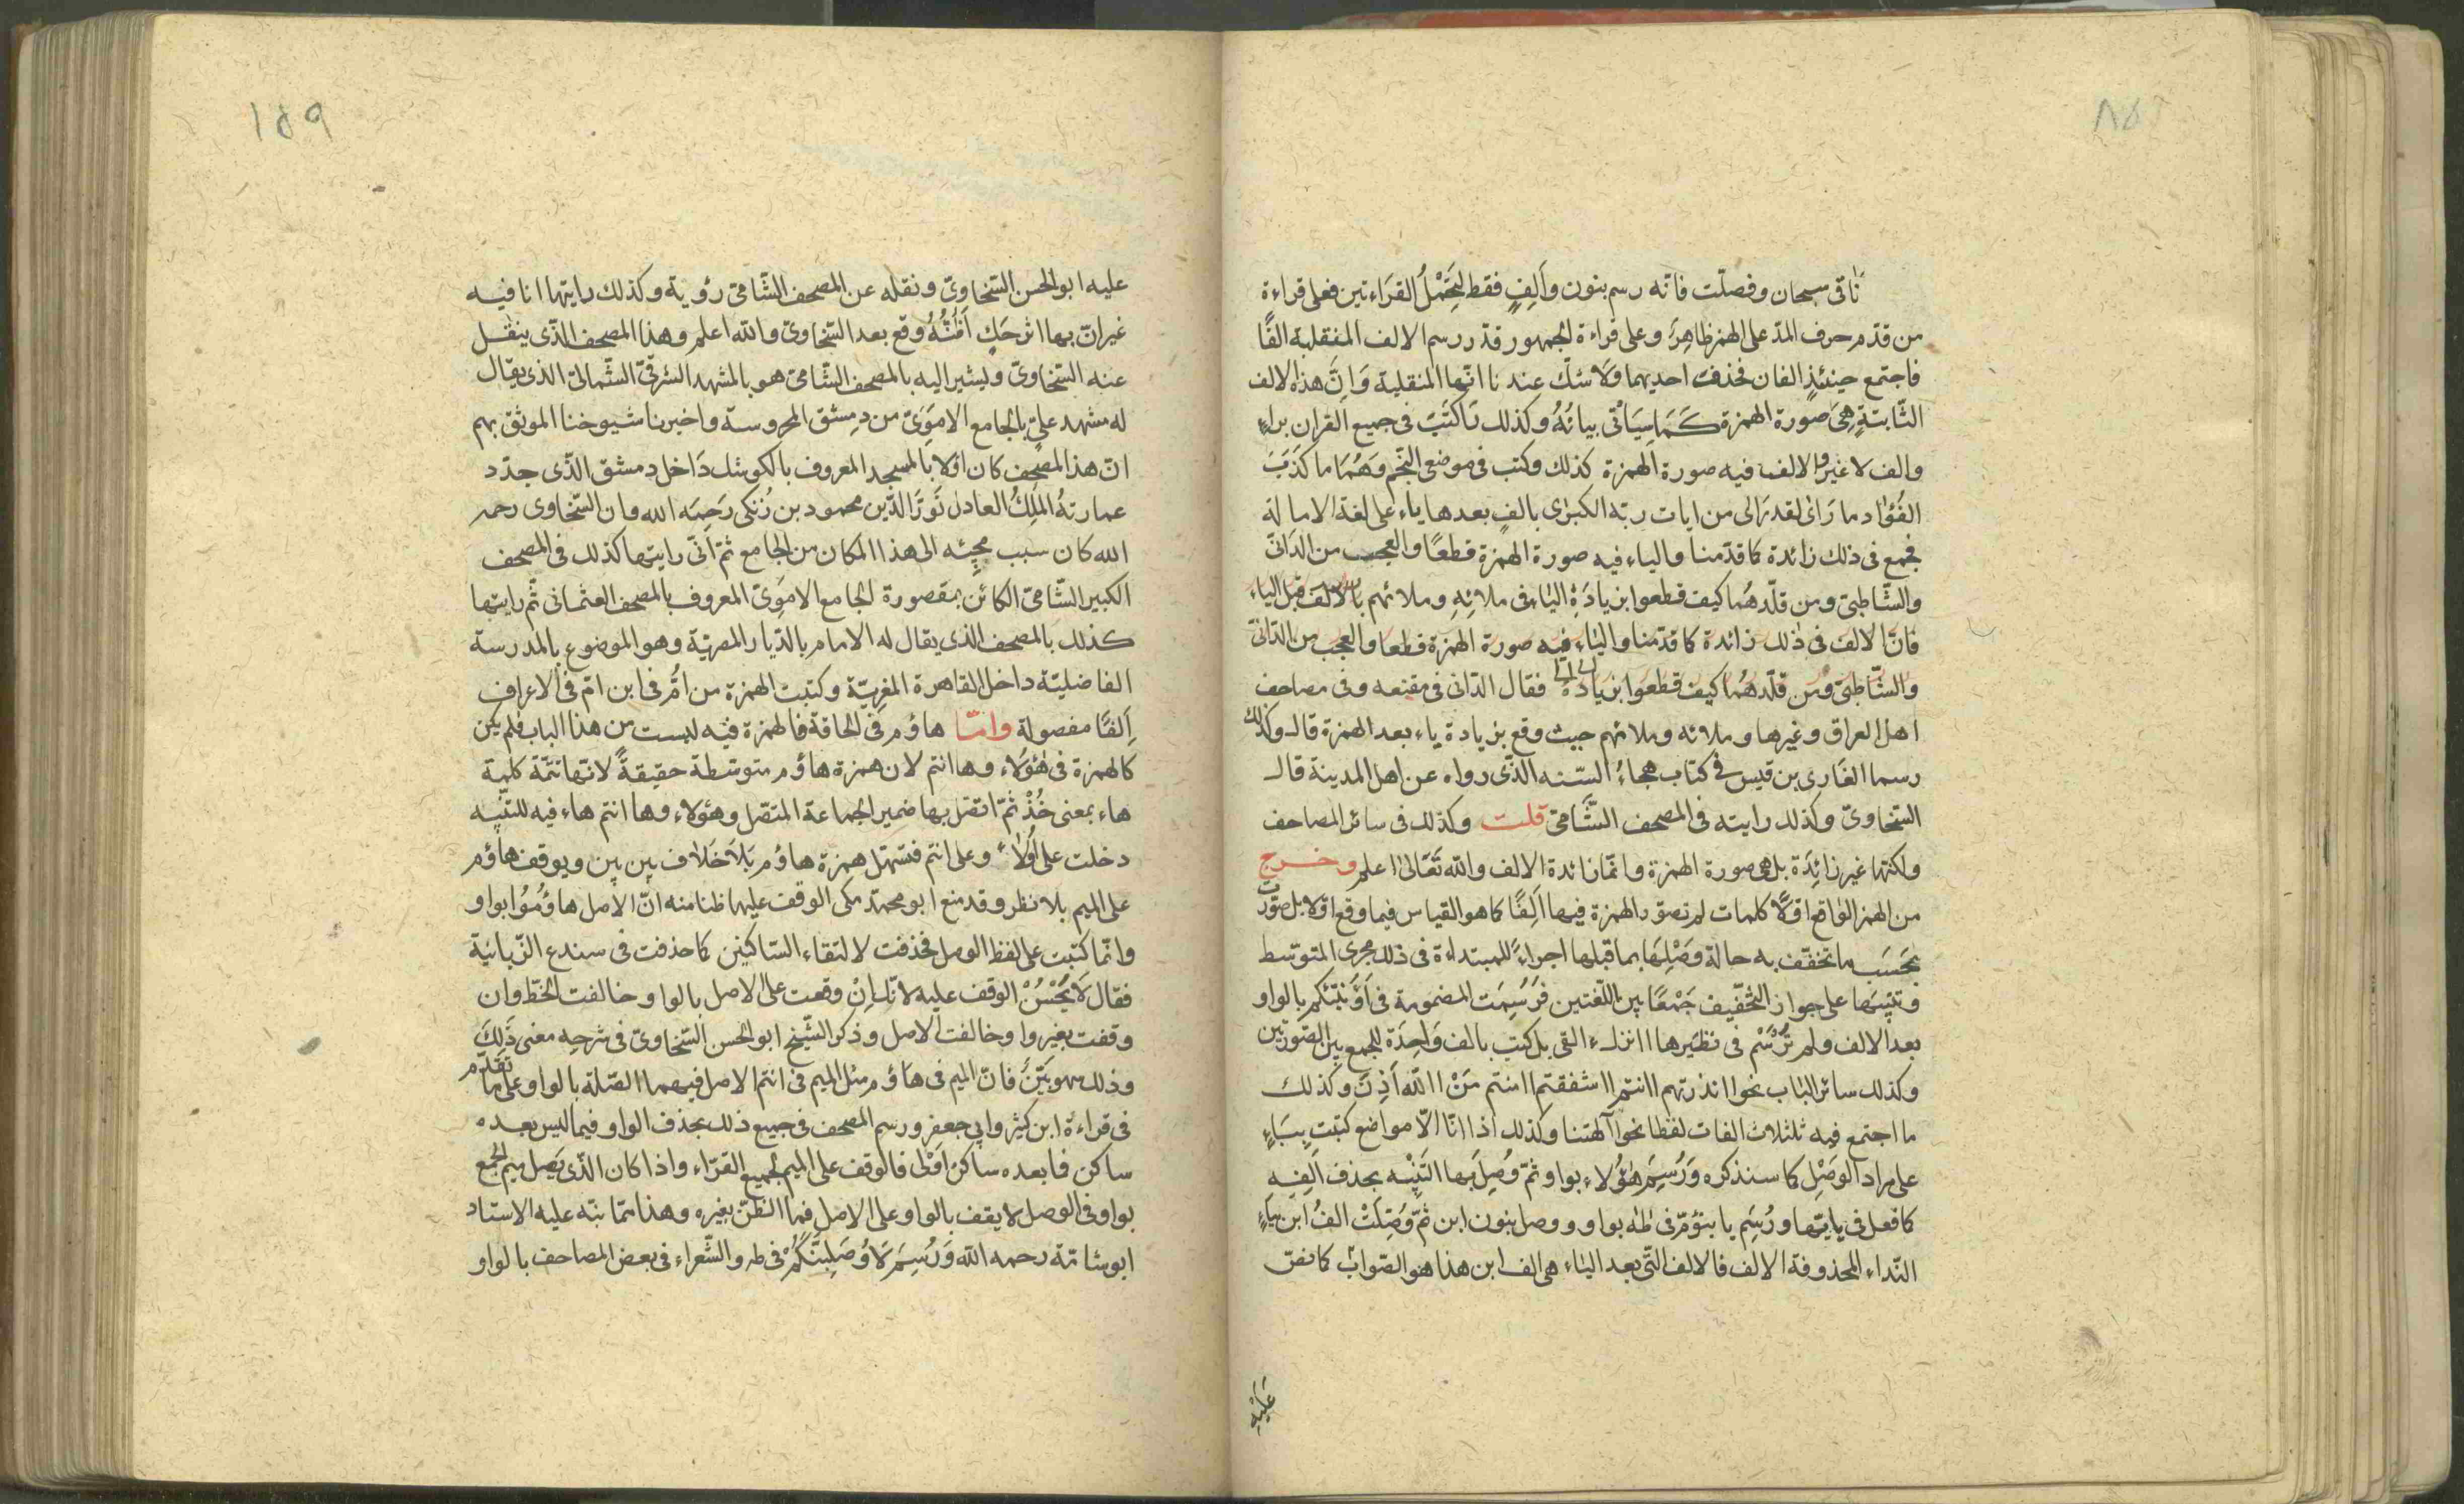 نأتى سبحان وفصلت فانه رسم بنون وألف فقط ليحتمل القراءتين فعلى قراءة
من قدم حرف المد على الهمز ظاهر وعلى قراءة الجمهور قد رسم الالف المنقلبة الفًا
فاجتمع حينئذ الفان فحذفت احديهما ولا شك عندنا انها المنقلبة وان هذه الالف
الثابتة هى صورة الهمزة كما سيأتى بيانه وكذلك نا كتب فى جميع القران براء
والف لا غير والالف فيه صورة الهمزة كذلك وكتب فى موضعى النجم وهما ما كذب
الفؤاد ما راى لقد راى من ايات ربه الكبرى بالف بعدها ياء على لغة الامالة
فجمع فى ذلك زائدة كما قدمنا والياء فيه صورة الهمزة قطعًا والعجب من الدانى
والشاطبى ومن قلدهما كيف قطعوا بزيادة الياء فى ملائه وملائهم بالالف قبل الياء
فان الالف فى ذلك زائدة كما قدمنا والياء فيه صورة الهمزة قطعا والعجب من الدانى
والشاطبى ومن قلدهما كيف قطعوا بزيادة الياء فقال الدانى فى مقنعه وفى مصاحف
اهل العراق وغيرها وملائه وملائهم حيث وقع بزيادة ياء بعد الهمزة قال وكذلك
رسمها الغازى بن قيس فى كتاب هجاء السنه الذى رواه عن اهل المدينة قال
السخاوى وكذلك رايته فى المصحف الشامى قلت وكذلك فى سائر المصاحف
ولكنها غير زائدة بل هى صورة الهمزة وانما زائدة الالف والله تعالى اعلم وخرج
من الهمز الواقع اولًا كلمات لم تصور الهمزة فيها الفًا كما هو القياس فيما وقع اولا بل صورت
بحسب ما تخفف به حالة وصلها بما قبلها اجراءً للمبتداءة فى ذلك مجرى المتوسط
وتنبيها على جواز التخفيف جمعًا بين اللغتين فرسمت المضمومة فى اؤنبئكم بالواو
بعد الالف ولم ترسم فى نظيرها اانزل ءالقى بل كتب بالف واحدة للجمع بين الصورتين
وكذلك سائر الباب نحو اانذرتهم اانتم ااشفقتم اامنتم من االله اذن وكذلك
ما اجتمع فيه ثلثلاث الفات لفظا نحو آلهتنا وكذلك اذا انا الا مواضع كتبت بياء
على مراد الوصل كما سنذكره ورسم هؤلاء بواو ثم وصل بها التنبيه بحذف الفه
كما فعل فى يايها ورسم يا بنؤم فى طه بواو ووصل بنون ابن ثم وصلت الف ابن بياء
النداء المحذوفة الالف فالالف التى بعد الياء هى الف ابن هذا هو الصواب كما نص
عليه
١٥٩
عليه ابو الحسن السخاوى ونقله عن المصحف الشامى رؤية وكذلك رايتها انا فيه
غير ان بها اثر حك اظنه وقع بعد السخاوى والله اعلم وهذا المصحف الذى ينقل
عنه السخاوى ويشير اليه بالمصحف الشامى هو بالمشهد الشرقى الشمالى الذى يقال
له مشهد على بالجامع الاموى من دمشق المحروسة واخبرنا شيوخنا الموثق بهم
ان هذا المصحف كان اولا بالمسجد المعروف بالكوشك داخل دمشق الذى جدد
عمارته الملك العادل نور الدين محمود بن زنكى رحمه الله وان السخاوى رحمه
الله كان سبب مجيئه الى هذا المكان من الجامع ثم انى رايتها كذلك فى المصحف
الكبير الشامى الكائن بمقصورة الجامع الاموى المعروف بالمصحف العثمانى ثم رايتها
كذلك بالمصحف الذى يقال له الامام بالديار المصرية وهو الموضوع بالمدرسة
الفاضلية داخل القاهرة المغزية وكتبت الهمزة من ام فى ابن ام فى الاعراف
الفًا مفصولة واما هاؤم فى الحاقة فالهمزة فيه ليست من هذا الباب فلم يكن
كالهمزة فى هؤلاء وها انتم لان همزة هاؤم متوسطة حقيقةً لانها تتمة كلمة
هاء بمعنى خذ ثم اتصل بها ضمير الجماعة المتصل وهؤلاء وها انتم هاء فيه للتنبيه
دخلت على أولاء وعلى انتم فتسهل همزة هاؤم بلا خلاف بين بين ويوقف هاؤم
على الميم بلا نظر وقد منع ابو محمد مكى الوقف عليها ظنا منه ان الاصل هاؤموا بواو
وانما كتبت على لفظ الوصل فحذفت لالتقاء الساكنين كما حذفت فى سندع الزبانية
فقال لا يحسن الوقف عليه لانك ان وقعت على الاصل بالواو خالفت الخط وان
وقفت بغير واو خالفت الاصل وذكر الشيخ ابو الحسن السخاوى فى شرحه معنى ذلك
وذلك سهو بين فان الميم فى هاؤم مثل الميم فى انتم الاصل فيهما الصلة بالواو على ما تقدم
فى قراءة ابن كثير وابى جعفر ورسم المصحف فى جميع ذلك بحذف الواو فيما ليس بعده
ساكن فما بعده ساكن اولى فالوقف على الميم لجميع القراء واذا كان الذى يصل ميم الجمع
بواو فى الوصل لا يقف بالواو على الاصل فما الظن بغيره وهذا مما نبه عليه الاستاد
ابو شامة رحمه الله ورسم لاوصلبنكم فى طه والشعراء فى بعض المصاحف بالواو